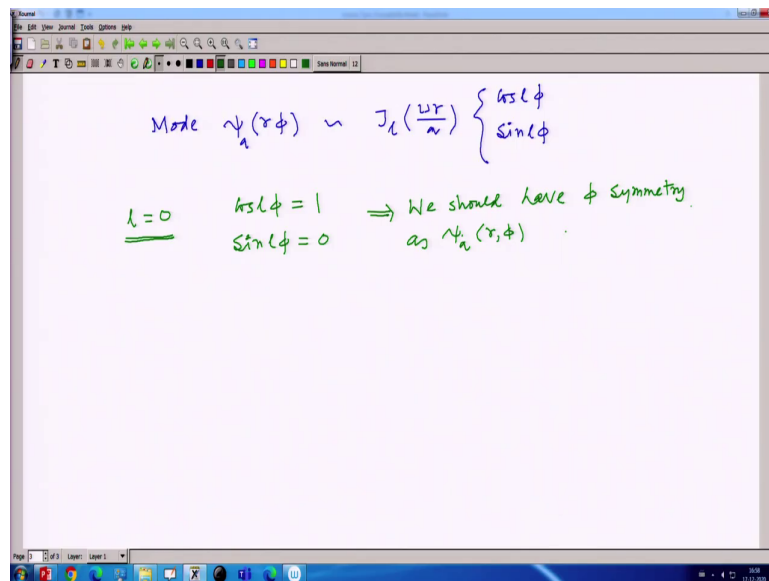 Xournal
File Edit View Journal Tools Options Help
Sans Normal 12
Mode ψ_q (rφ) ~ J_l (Ur/a) { cos lφ
sin lφ
l = 0 cos lφ = 1 ⇒ We should have φ symmetry
sin lφ = 0 as ψ_q (r, φ) .
Page 3 of 3 Layer: Layer 1
16:58